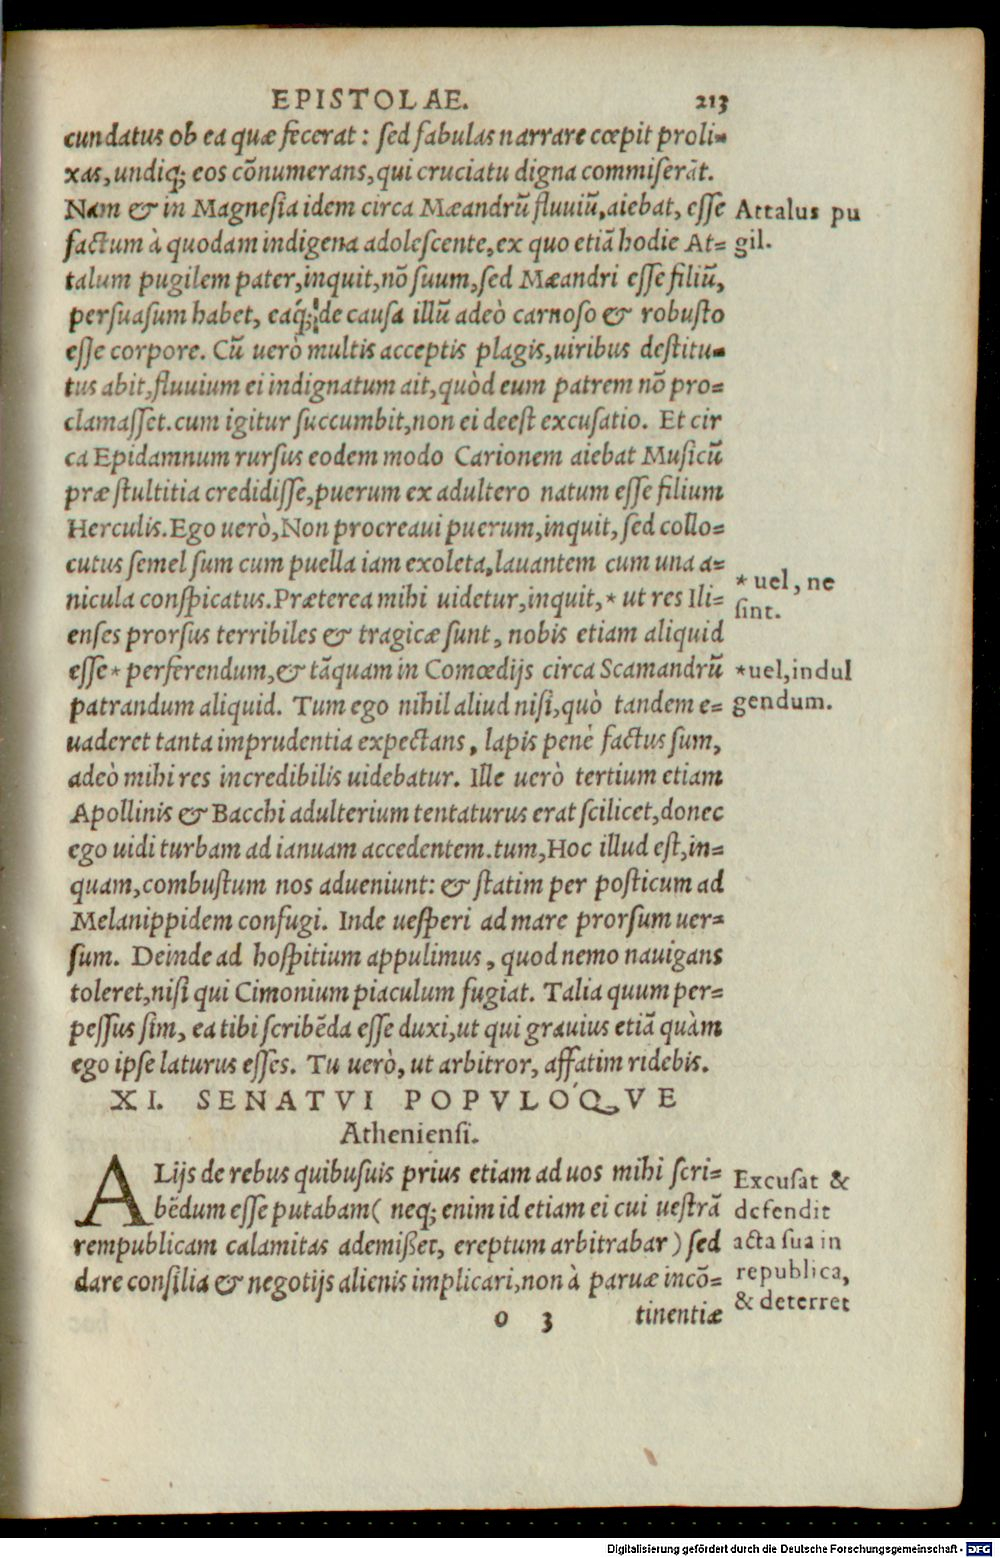 EPISTOLAE. 213
cundatus ob ea quæ fecerat: sed fabulas narrare cœpit proli-
xas, undiq; eos cōnumerans, qui cruciatu digna commiserāt.
Nam & in Magnesia idem circa Mæandrū fluuiū, aiebat, esse
factum à quodam indigena adolescente, ex quo etiā hodie At=
talum pugilem pater, inquit, nō suum, sed Mæandri esse filiū,
persuasum habet, eaq́; de causa illū adeò carnoso & robusto
esse corpore. Cū uerò multis acceptis plagis, uiribus destitu-
tus abit, fluuium ei indignatum ait, quòd eum patrem nō pro=
clamasset. cum igitur succumbit, non ei deest excusatio. Et cir
ca Epidamnum rursus eodem modo Carionem aiebat Musicū
præ stultitia credidisse, puerum ex adultero natum esse filium
Herculis. Ego uerò, Non procreaui puerum, inquit, sed collo=
cutus semel sum cum puella iam exoleta, lauantem cum una a=
nicula conspicatus. Præterea mihi uidetur, inquit, * ut res Ili=
enses prorsus terribiles & tragicæ sunt, nobis etiam aliquid
esse * perferendum, & tāquam in Comœdijs circa Scamandrū
patrandum aliquid. Tum ego nihil aliud nisi, quò tandem e=
uaderet tanta imprudentia expectans, lapis penè factus sum,
adeò mihi res incredibilis uidebatur. Ille uerò tertium etiam
Apollinis & Bacchi adulterium tentaturus erat scilicet, donec
ego uidi turbam ad ianuam accedentem. tum, Hoc illud est, in=
quam, combustum nos adueniunt: & statim per posticum ad
Melanippidem confugi. Inde uesperi ad mare prorsum uer=
sum. Deinde ad hospitium appulimus, quod nemo nauigans
toleret, nisi qui Cimonium piaculum fugiat. Talia quum per=
pessus sim, ea tibi scribēda esse duxi, ut qui grauius etiā quàm
ego ipse laturus esses. Tu uerò, ut arbitror, affatim ridebis.
XI. SENATVI POPVLÓQVE
Atheniensi.
ALijs de rebus quibusuis prius etiam ad uos mihi scri=
bēdum esse putabam( neq; enim id etiam ei cui uestrā
rempublicam calamitas ademißet, ereptum arbitrabar) sed
dare consilia & negotijs alienis implicari, non à paruæ incō=
o 3 tinentiæ
Attalus pu
gil.
* uel, ne
sint.
*uel, indul
gendum.
Excusat &
defendit
acta sua in
republica,
& deterret
Digitalisierung gefördert durch die Deutsche Forschungsgemeinschaft - DFG